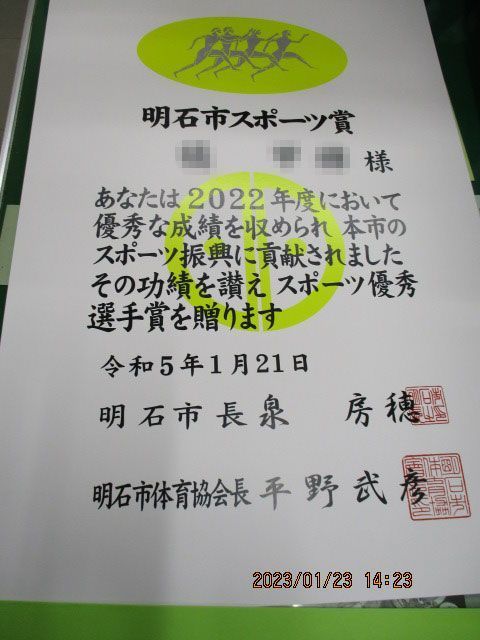 明石市スポーツ賞
様
あなたは2022年度において
優秀な成績を収められ 本市の
スポーツ振興に貢献されました
その功績を讃え スポーツ優秀
選手賞を贈ります
令和5年1月21日
明石市長 泉 房穂
明石市体育協会長 平野武彦
2023/01/23 14:23